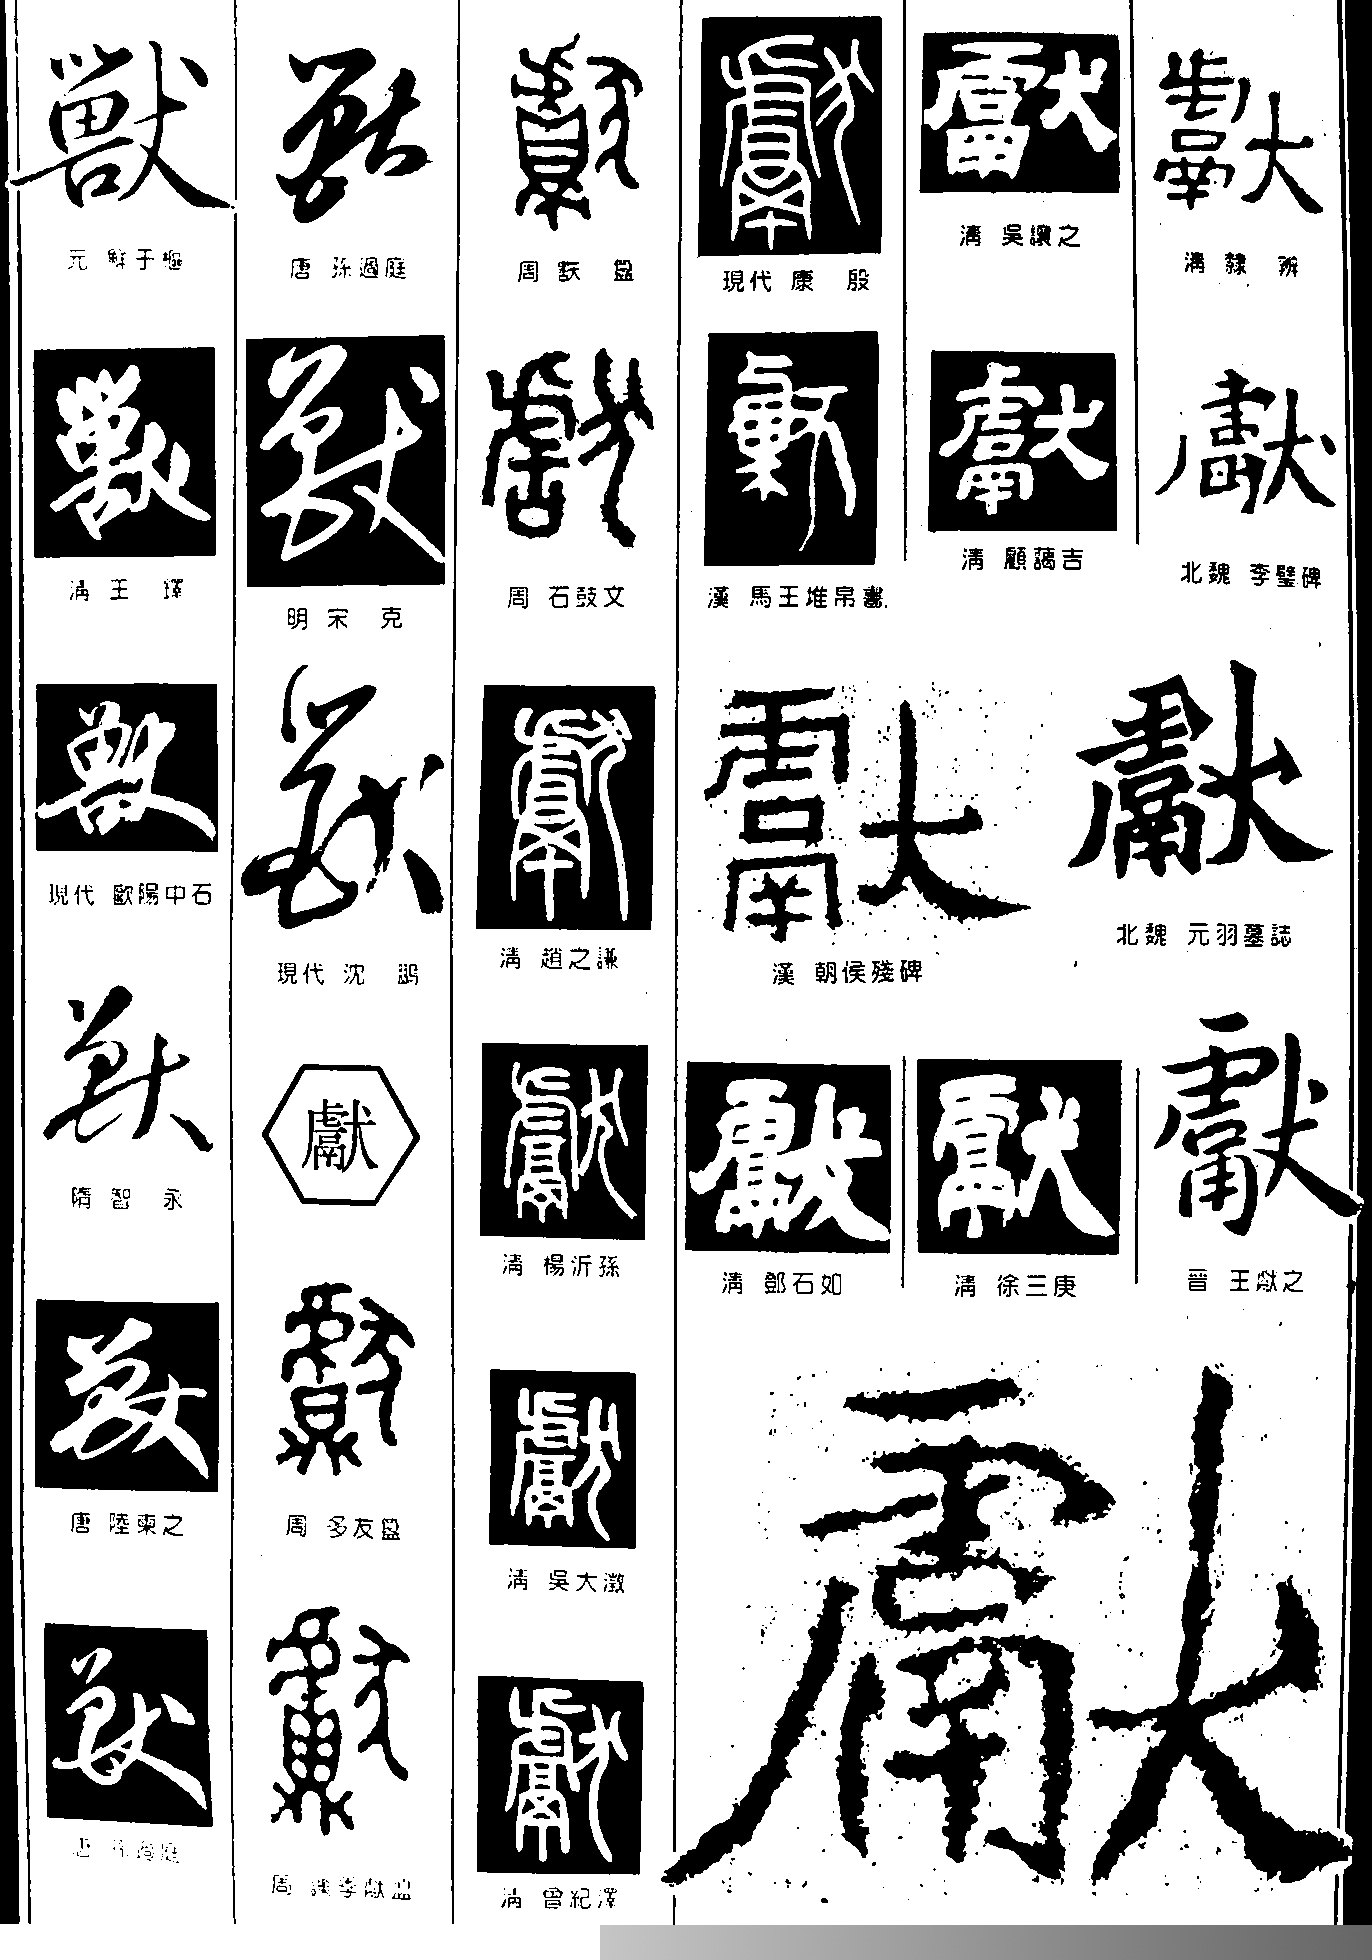 獸
元 鮮于樞
獸
清 王 鐸
獸
現代 歐陽中石
獸
隋 智 永
獸
唐 陸柬之
獸
唐 孫過庭
獸
唐 孫過庭
獸
明 宋 克
獸
現代 沈 鵬
獻
獻
周 多友鼎
獻
獻
周
獻
周 石鼓文
獻
清 趙之謙
獻
清 楊沂孫
獻
清 吳大澂
獻
清 曾紀澤
獻
現代 康 殷
獻
漢 馬王堆帛書
獻
漢 朝侯殘碑
獻
清 鄧石如
獻
清 吳讓之
獻
清 顧藹吉
獻
清 徐三庚
獻
清 隸 辨
獻
北魏 李璧碑
獻
北魏 元羽墓誌
獻
晉 王獻之
獻